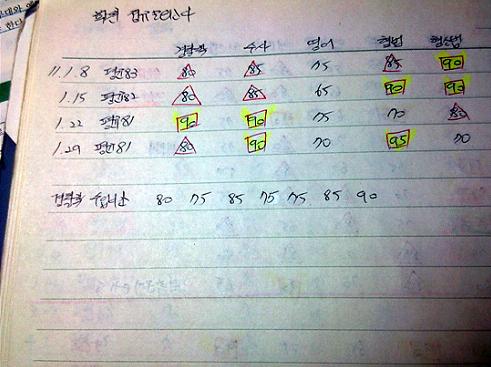 경찰학 수사 영어 형법 형소법
11.1.8 평균83 80 85 75 85 90
1.15 평균82 80 85 65 90 90
1.22 평균81 90 90 75 70 80
1.29 평균81 80 90 70 95 70
경찰학 80 75 85 75 75 85 90